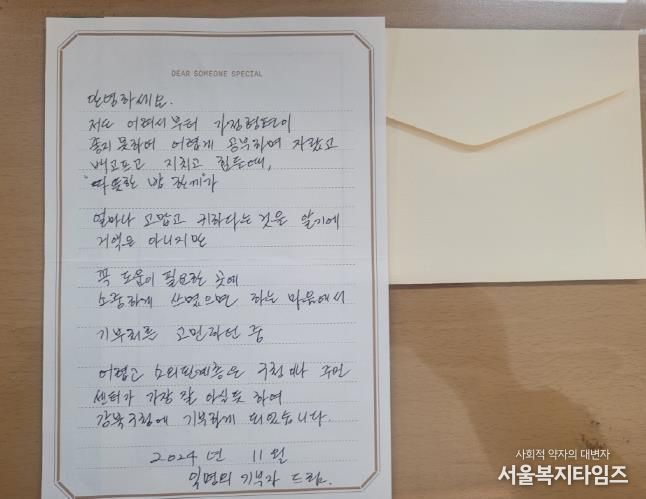 DEAR SOMEONE SPECIAL
안녕하세요.
저는 어려서부터 가정형편이
좋지 못하여 어렵게 공부하며 자랐고
배고프고 지치고 힘들때,
"따뜻한 밥 한끼"가
얼마나 고맙고 귀하다는 것을 알기에
거액은 아니지만
꼭 도움이 필요한 곳에
소중하게 쓰였으면 하는 마음에서
기부처를 고민하던 중
어렵고 소외된계층은 구청이나 주민
센터가 가장 잘 아실듯 하여
강북구청에 기부하게 되었습니다.
2024년 11월
익명의 기부자 드림.
사회적 약자의 대변자
서울복지타임즈